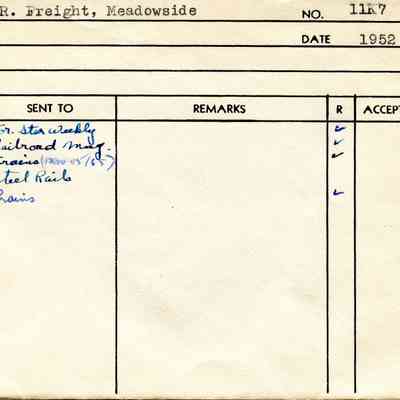 R. Freight, Meadowside NO. 11K7
DATE 1952
SENT TO REMARKS R ACCEPT
or. Star Weekly ✓
ailroad Mag. ✓
rains ✓
teel Rails
rains ✓